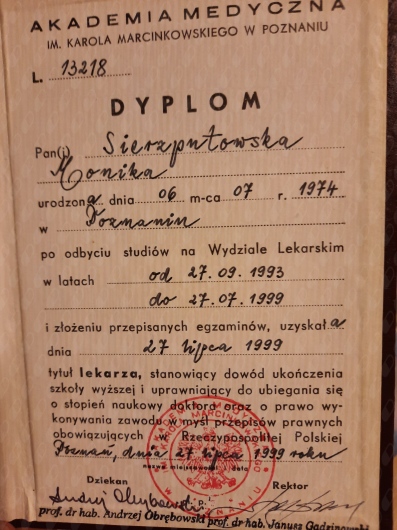 AKADEMIA MEDYCZNA
IM. KAROLA MARCINKOWSKIEGO W POZNANIU
L. 13218
DYPLOM
Pan(i) Sierzputowska
Monika
urodzona dnia 06 m-ca 07 r. 1974
w Poznaniu
po odbyciu studiów na Wydziale Lekarskim
w latach od 27.09.1993
do 27.07.1999
i złożeniu przepisanych egzaminów, uzyskała
dnia 27 lipca 1999
tytuł lekarza, stanowiący dowód ukończenia
szkoły wyższej i uprawniający do ubiegania się
o stopień naukowy doktora oraz o prawo wy-
konywania zawodu w myśl przepisów prawnych
obowiązujących w Rzeczypospolitej Polskiej
Poznań, dnia 27 lipca 1999 roku
nazwa miejscowości data
Dziekan Rektor
prof. dr hab. Andrzej Obrębowski prof. dr hab. Janusz Gadzinowski